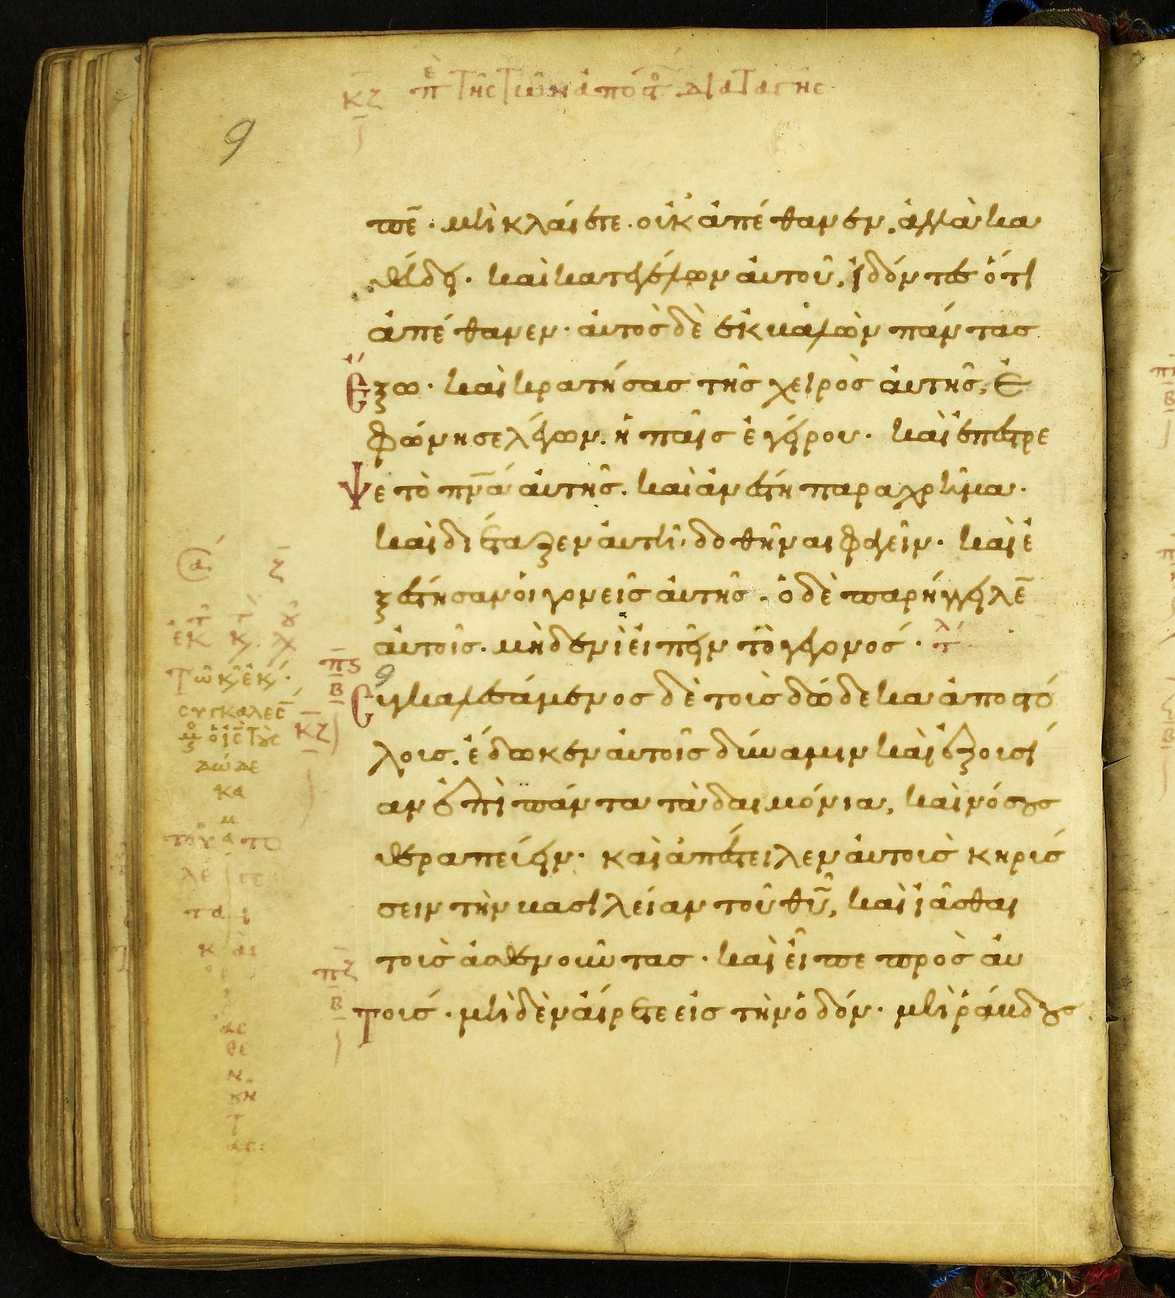 κζ πε της των αποστ διαταγης
9
πε̄· μὴ κλαίετε· οὐκ ἀπέθανεν, ἀλλὰ κα
θεύδει· καὶ κατεγέλων ἀυτοῦ, ἰδόντες ὅτι
ἀπέθανεν· ἀυτὸς δὲ ἐκβαλὼν πάντας
ἔξω· καὶ κρατήσας τῆς χειρὸς ἀυτῆς, ἐ
φώνησε λέγων. ἡ παῖς ἐγείρου· καὶ ἐπέστρε
ψε τὸ πν̄ά ἀυτῆς. καὶ ἀνέστη παραχρῆμα·
καὶ διέταξεν ἀυτῇ δοθῆναι φαγεῖν· καὶ ἐ
ξέστησαν οἱ γονεῖς ἀυτῆς. ὁ δὲ παρήγγειλε̄
ἀυτοῖς. μηδενὶ εἰπεῖν τὸ γεγονός· τλ
πς β 9
Συγκαλεσάμενος δὲ τοὺς δώδεκα ἀποστό
λους, ἔδωκεν ἀυτοῖς δύναμιν καὶ ἐξουσί
αν ἐπὶ πάντα τὰ δαιμόνια, καὶ νόσους
θεραπεύειν· καὶ ἀπέστειλεν ἀυτοὺς κηρύσ
σειν τὴν βασιλείαν τοῦ θῡ, καὶ ἰᾶσθαι
τοὺς ἀσθενοῦντας· καὶ εἶπε πρὸς ἀυ
πζ β
τούς· μηδὲν αἴρετε εἰς τὴν ὁδόν· μὴ ῥάβδους
α ζ
τῶ κ ἐκ
συγκαλεσ
ὁ ις τους
δώδε
κα
κζ